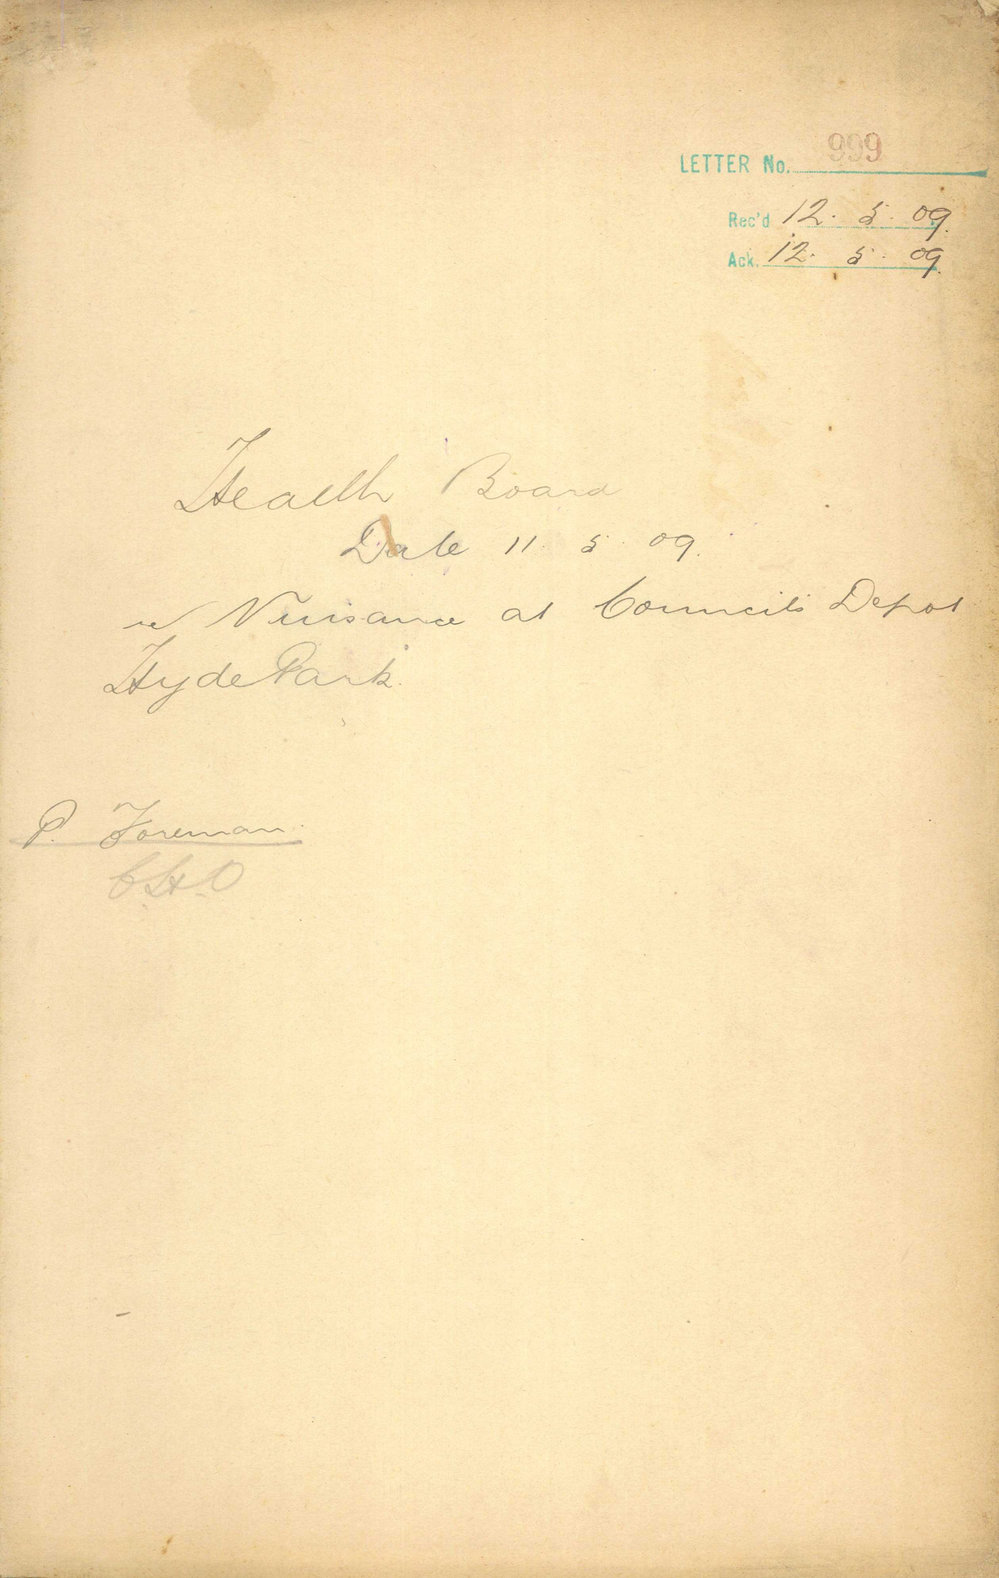 LETTER No. 999
Rec'd 12. 5. 09.
Ack. 12. 5. 09.
Health Board
Date 11. 5. 09.
re Nuisance at Councils Depot
Hyde Park.
P. Foreman.
C.H.O